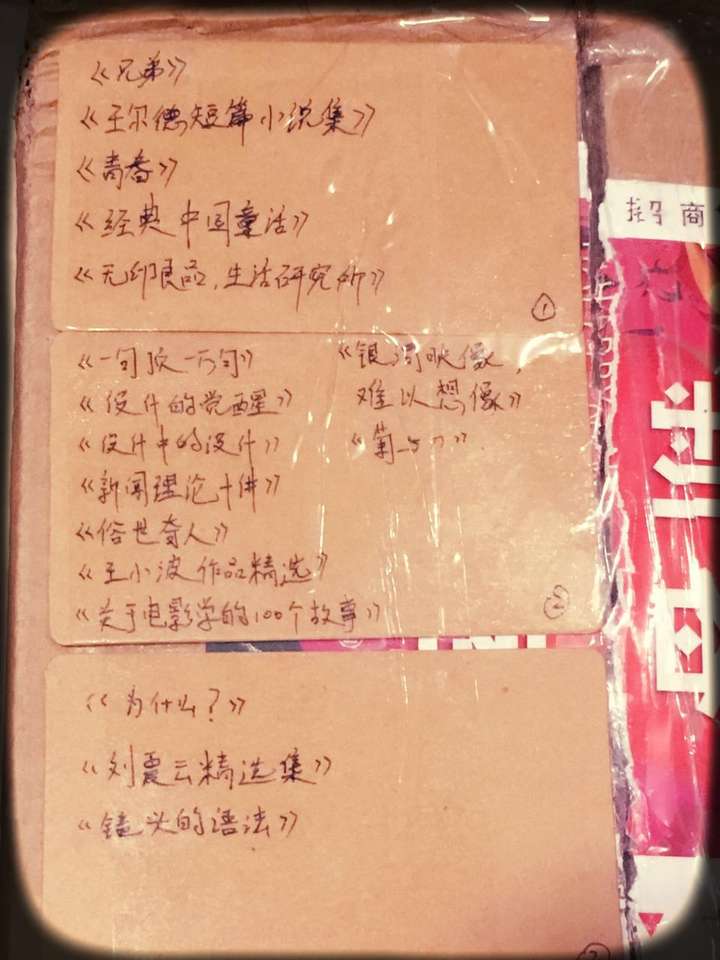 《兄弟》
《王尔德短篇小说集》
《青春》
《经典中国童话》
《无印良品，生活研究所》
①
《一句顶一万句》
《设计的觉醒》
《设计中的设计》
《新闻理论十讲》
《俗世奇人》
《王小波作品精选》
《关于电影学的100个故事》
《银河映像，
难以想像》
《菊与刀》
②
《为什么？》
《刘震云精选集》
《镜头的语法》
招商